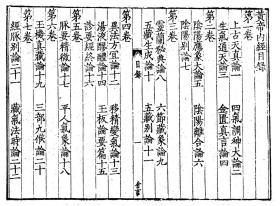 黃帝内經目錄
第一卷
上古天真論一 四氣調神大論二
生氣通天論三 金匱真言論四
第二卷
陰陽應象大論五 陰陽離合論六
陰陽別論七
第三卷
靈蘭秘典論八 六節藏象論九
五藏生成論十 五藏別論十一
目錄
第四卷
異法方宜論十二 移精變氣論十三
湯液醪醴論十四 玉版論要篇十五
診要經終論十六
第五卷
脉要精微論十七 平人氣象論十八
第六卷
玉機真藏論十九 三部九候論二十
經脉別論二十一 藏氣法時論二十二